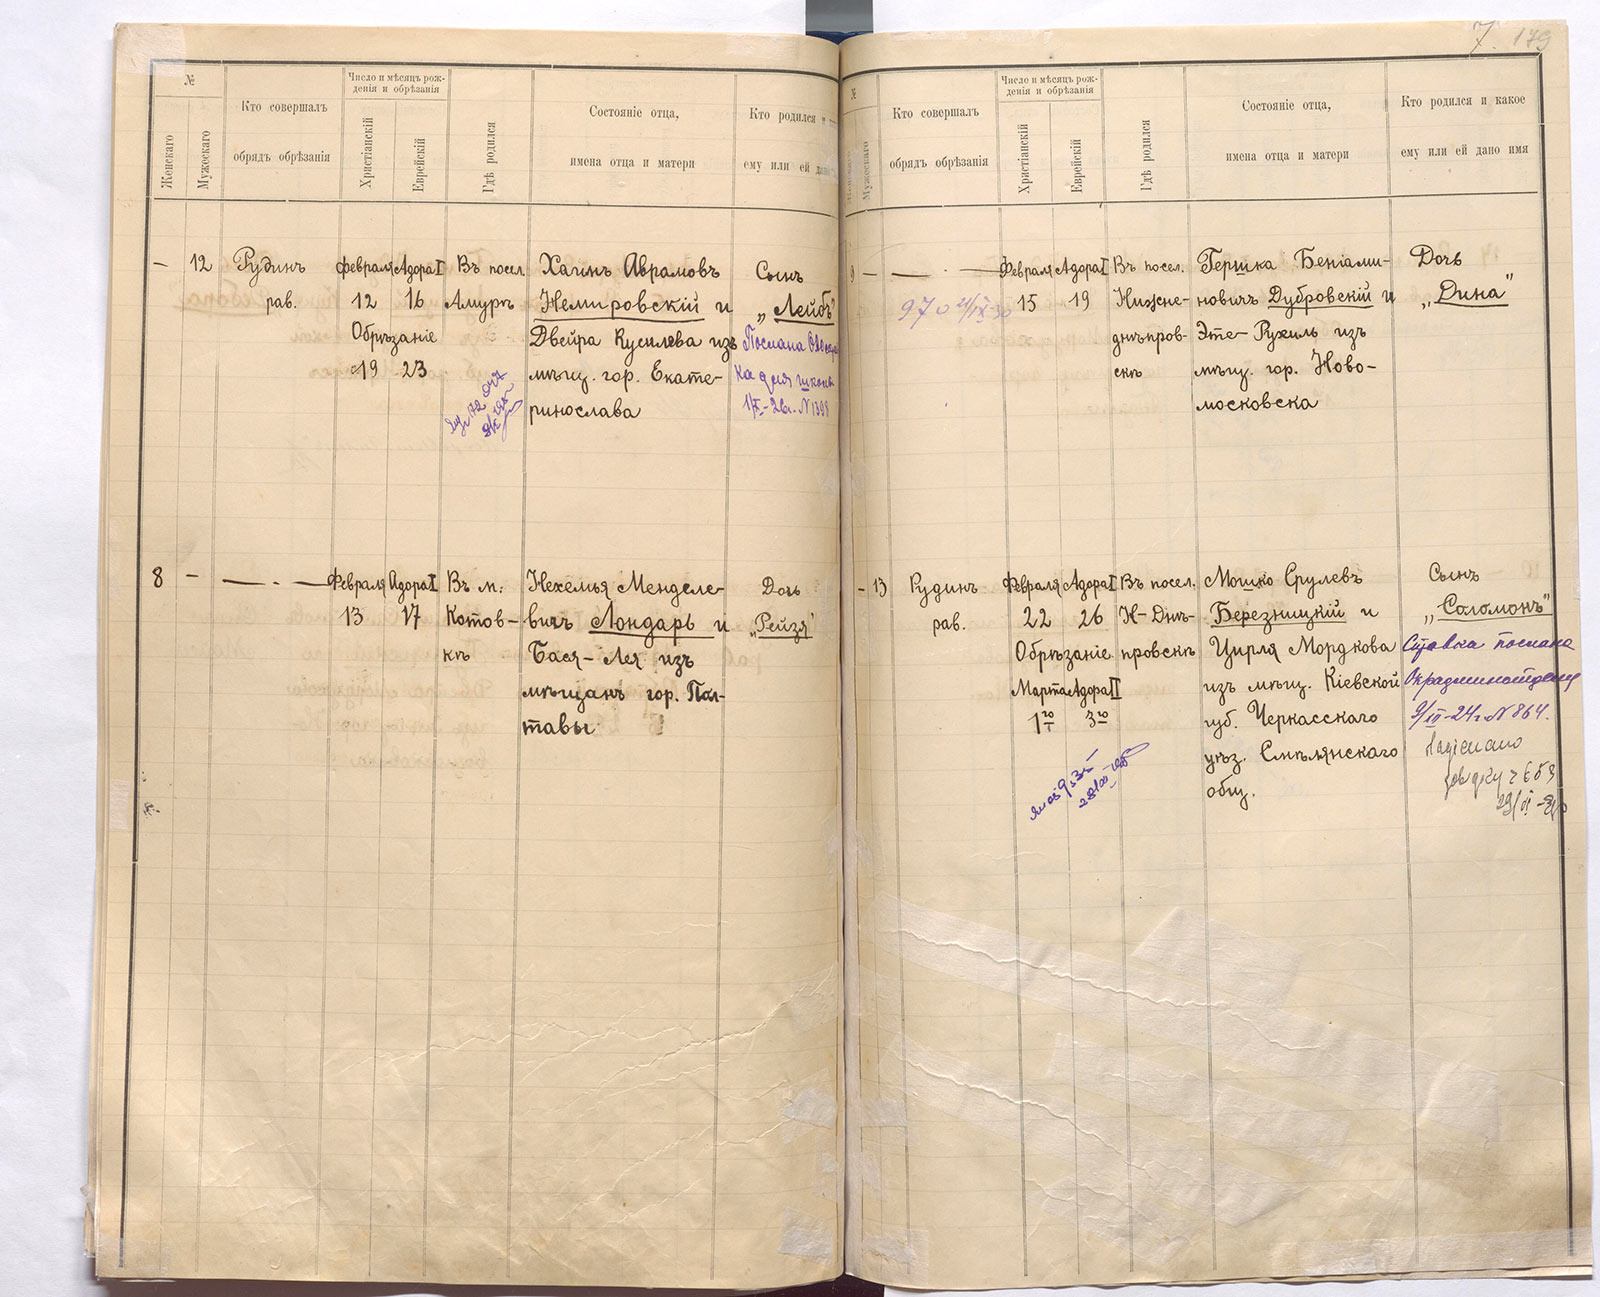 №
Женскаго
Мужескаго
Кто совершалъ
обрядъ обрѣзанія
Число и мѣсяцъ рож-
денія и обрѣзанія
Христіанскій
Еврейскій
Гдѣ родился
Состояніе отца,
имена отца и матери
Кто родился и
ему или ей дано
— 12
Рудинъ
рав.
Февраля Адора I
12 16
Обрѣзаніе
19 23
Въ посел.
Амурѣ
Хаимъ Аврамовъ
Немировскій и
Двейра Кусилева изъ
мѣщ. гор. Екате-
ринослава
Сынъ
„Лейбъ"
Послана
для
№ 1399
8 —
— . —
Февраля Адора I
13 17
Въ м.
Котов-
кѣ
Нехемья Менделе-
вичъ Лондарь и
Бася-Лея изъ
мѣщанъ гор. Пол-
тавы
Дочь
„Рейзя"
7. 179
№
Мужескаго
Кто совершалъ
обрядъ обрѣзанія
Число и мѣсяцъ рож-
денія и обрѣзанія
Христіанскій
Еврейскій
Гдѣ родился
Состояніе отца,
имена отца и матери
Кто родился и какое
ему или ей дано имя
9 —
— . —
Февраля Адора I
15 19
Въ посел.
Нижне-
днѣпров-
скѣ
Гершка Беніами-
новичъ Дубровскій и
Эте-Рухиль изъ
мѣщ. гор. Ново-
московска
Дочь
„Дина"
— 13
Рудинъ
рав.
Февраля Адора I
22 26
Обрѣзаніе
Марта Адора II
1го 3го
Въ посел.
Н-Днѣ-
провскѣ
Мошко Срулевъ
Березницкій и
Цирля Мордкова
изъ мѣщ. Кіевской
губ. Черкасскаго
уѣз. Смѣлянскаго
общ.
Сынъ
„Соломонъ"
Справка послана
Окрадминотделу
9/III-24г № 864.